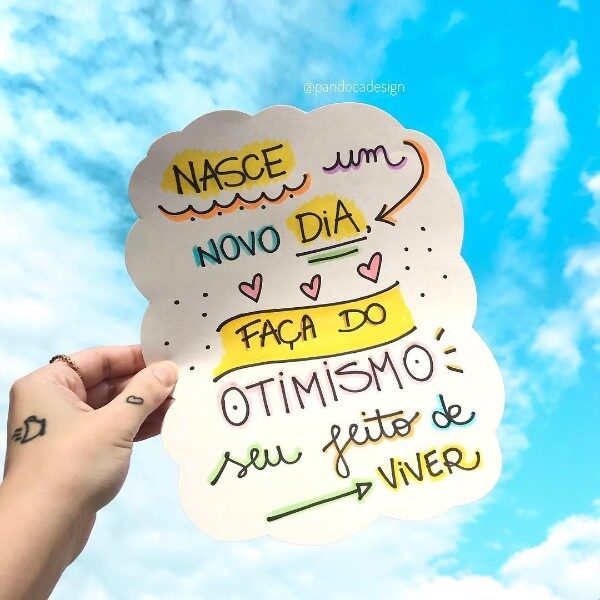 @pandocadesign
NASCE um
NOVO DiA,
FAÇA DO
OTiMiSMO
seu feito de
ViVER